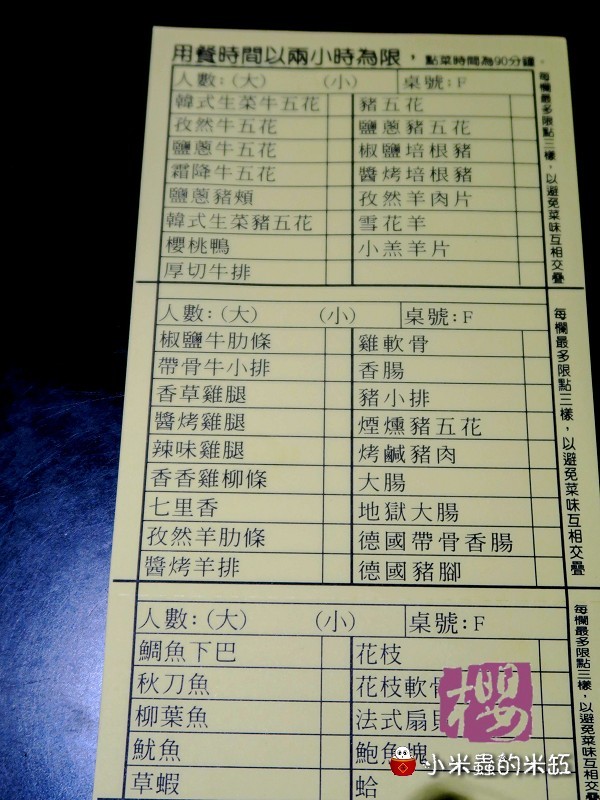 用餐時間以兩小時為限，點菜時間為90分鐘。
人數:(大) (小) 桌號:F
韓式生菜牛五花 豬五花
孜然牛五花 鹽蔥豬五花
鹽蔥牛五花 椒鹽培根豬
霜降牛五花 醬烤培根豬
鹽蔥豬頰 孜然羊肉片
韓式生菜豬五花 雪花羊
櫻桃鴨 小羔羊片
厚切牛排
每欄最多限點三樣，以避免菜味互相交疊
人數:(大) (小) 桌號:F
椒鹽牛肋條 雞軟骨
帶骨牛小排 香腸
香草雞腿 豬小排
醬烤雞腿 煙燻豬五花
辣味雞腿 烤鹹豬肉
香香雞柳條 大腸
七里香 地獄大腸
孜然羊肋條 德國帶骨香腸
醬烤羊排 德國豬腳
每欄最多限點三樣，以避免菜味互相交疊
人數:(大) (小) 桌號:F
鯛魚下巴 花枝
秋刀魚 花枝軟骨
柳葉魚 法式扇貝
魷魚 鮑魚塊
草蝦 蛤
每欄最多限點三樣，以避免菜味互相交疊
櫻
小米蟲的米缸